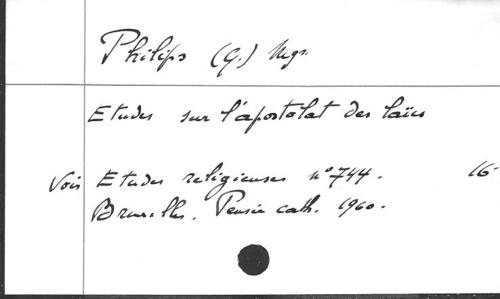 Philips (G.) Mgr.
Etudes sur l'apostolat des laïcs
Voir Etudes religieuses n° 744. 16-
Bruxelles. Pensée cath. 1960.